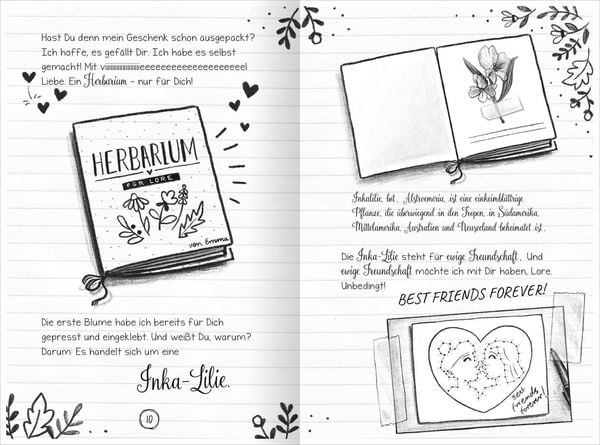 Hast Du denn mein Geschenk schon ausgepackt?
Ich hoffe, es gefällt Dir. Ich habe es selbst
gemacht! Mit viiiiiiiiiiiiiiieeeeeeeeeeeeeeeeeeeel
Liebe. Ein Herbarium – nur für Dich!
HERBARIUM
FÜR LORE
von Emma
Die erste Blume habe ich bereits für Dich
gepresst und eingeklebt. Und weißt Du, warum?
Darum: Es handelt sich um eine
Inka-Lilie.
10
Inkalilie, bot. Alstroemeria, ist eine einkeimblättrige
Pflanze, die überwiegend in den Tropen, in Südamerika,
Mittelamerika, Australien und Neuseeland beheimatet ist.
Die Inka-Lilie steht für ewige Freundschaft. Und
ewige Freundschaft möchte ich mit Dir haben, Lore.
Unbedingt!
BEST FRIENDS FOREVER!
best
friends
forever!